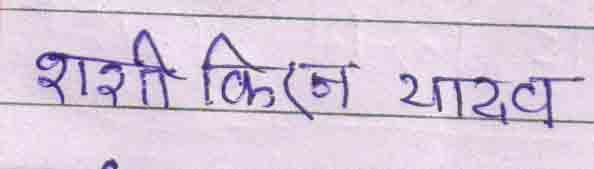 शशी किरन यादव